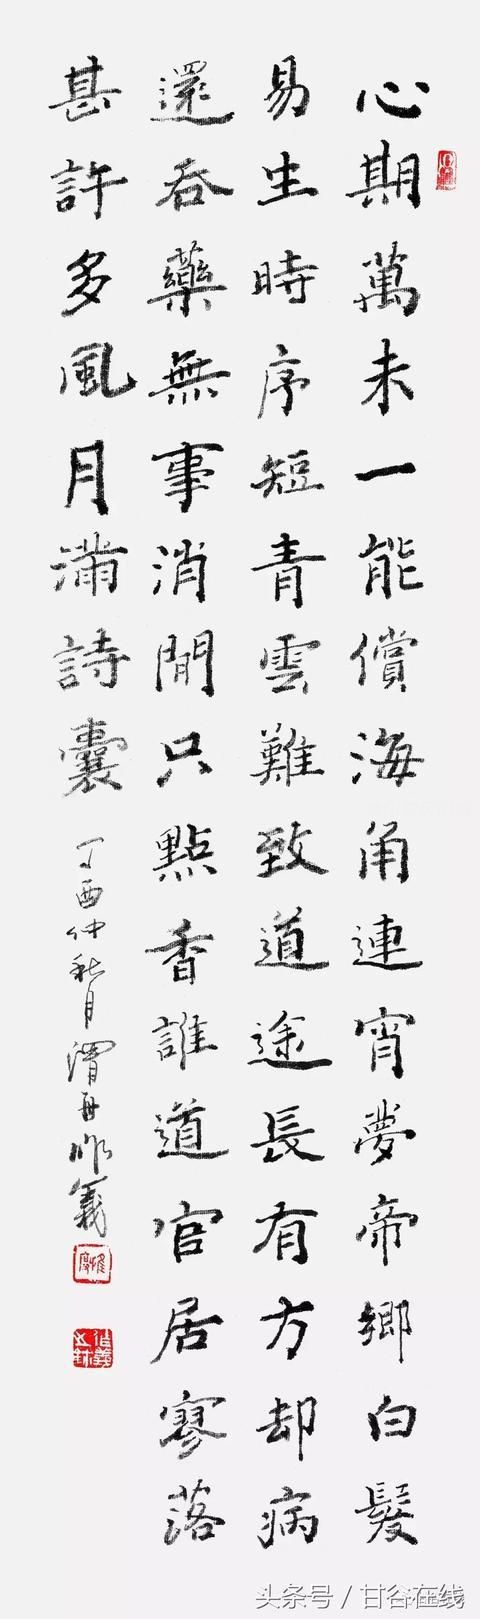 心期萬未一能償海角連宵夢帝鄉白髮
易生時序短青雲難致道途長有方却病
還吞藥無事消閒只點香誰道官居寥落
甚許多風月滿詩囊
丁酉仲秋月渭作義
头条号 / 甘谷在线